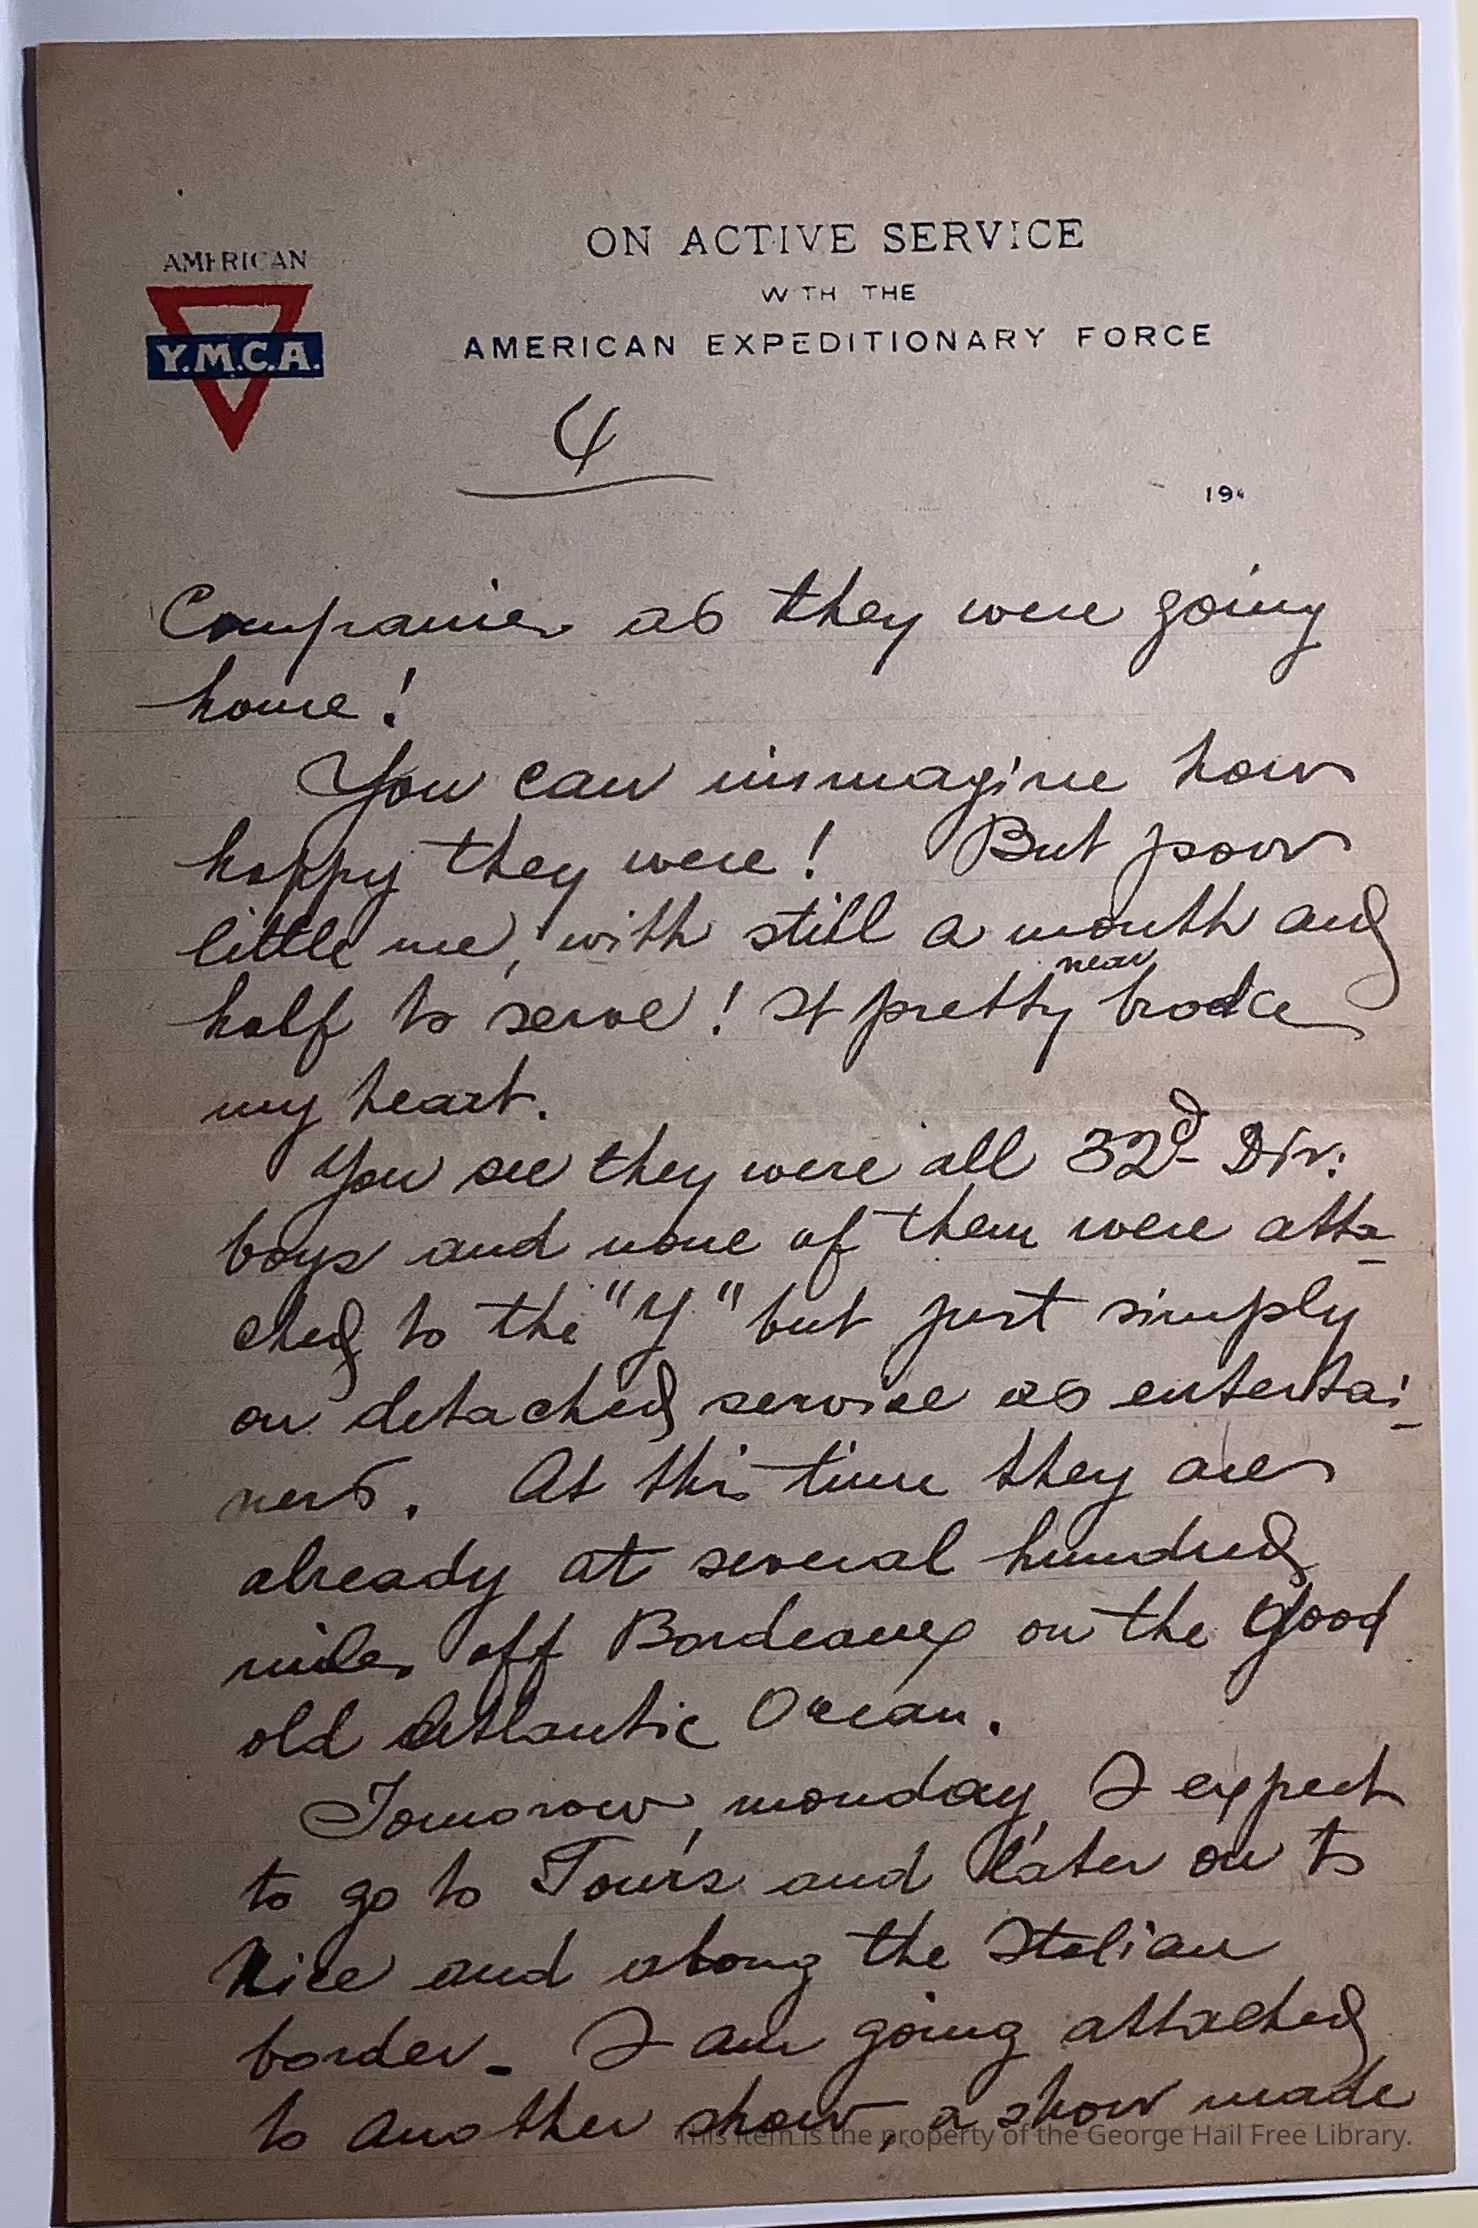 AMERICAN
Y.M.C.A.
ON ACTIVE SERVICE
WITH THE
AMERICAN EXPEDITIONARY FORCE
4
191
Companies as they were going
home!
You can inmagine how
happy they were! But poor
little me, with still a month and
half to serve! It pretty near brocke
my heart.
You see they were all 32d Div:
boys and none of them were atta-
ched to the "Y" but just simply
on detached service as entertai-
ners. At this time they are
already at several hundred
miles off Bordeaux on the good
old Atlantic Ocean.
Tomorow, monday, I expect
to go to Tours and later on to
Nice and along the Italian
border. I am going attached
to another show, a show made
This item is the property of the George Hail Free Library.